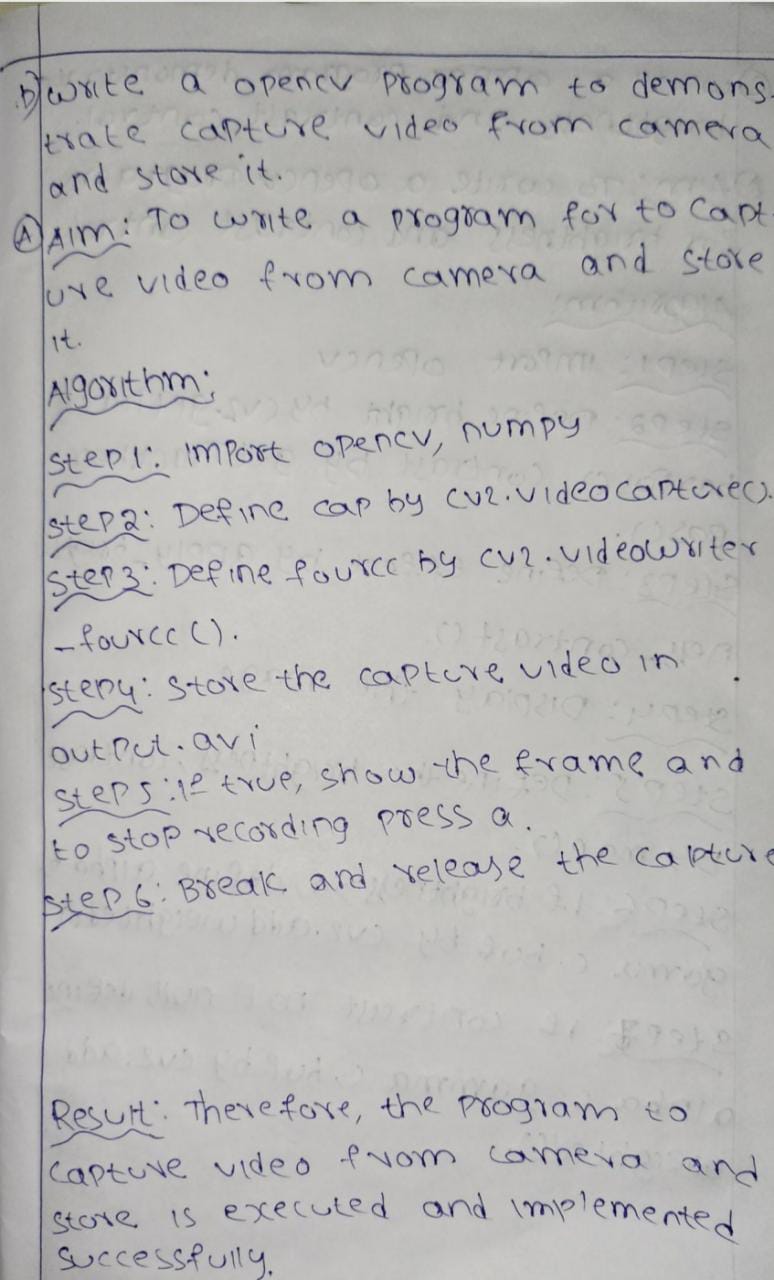 b) write a opencv program to demons-
trate capture video from camera
and store it.
(A) Aim: To write a program for to capt-
ure video from camera and store
it.
Algorithm:
Step1: Import opencv, numpy
Step2: Define cap by cv2.videocapture().
Step3: Define fourcc by cv2.videowriter
_fourcc().
Step4: Store the capture video in
output.avi
Step5: if true, show the frame and
to stop recording press a.
Step6: Break and release the capture
Result: Therefore, the program to
capture video from camera and
store is executed and implemented
successfully.